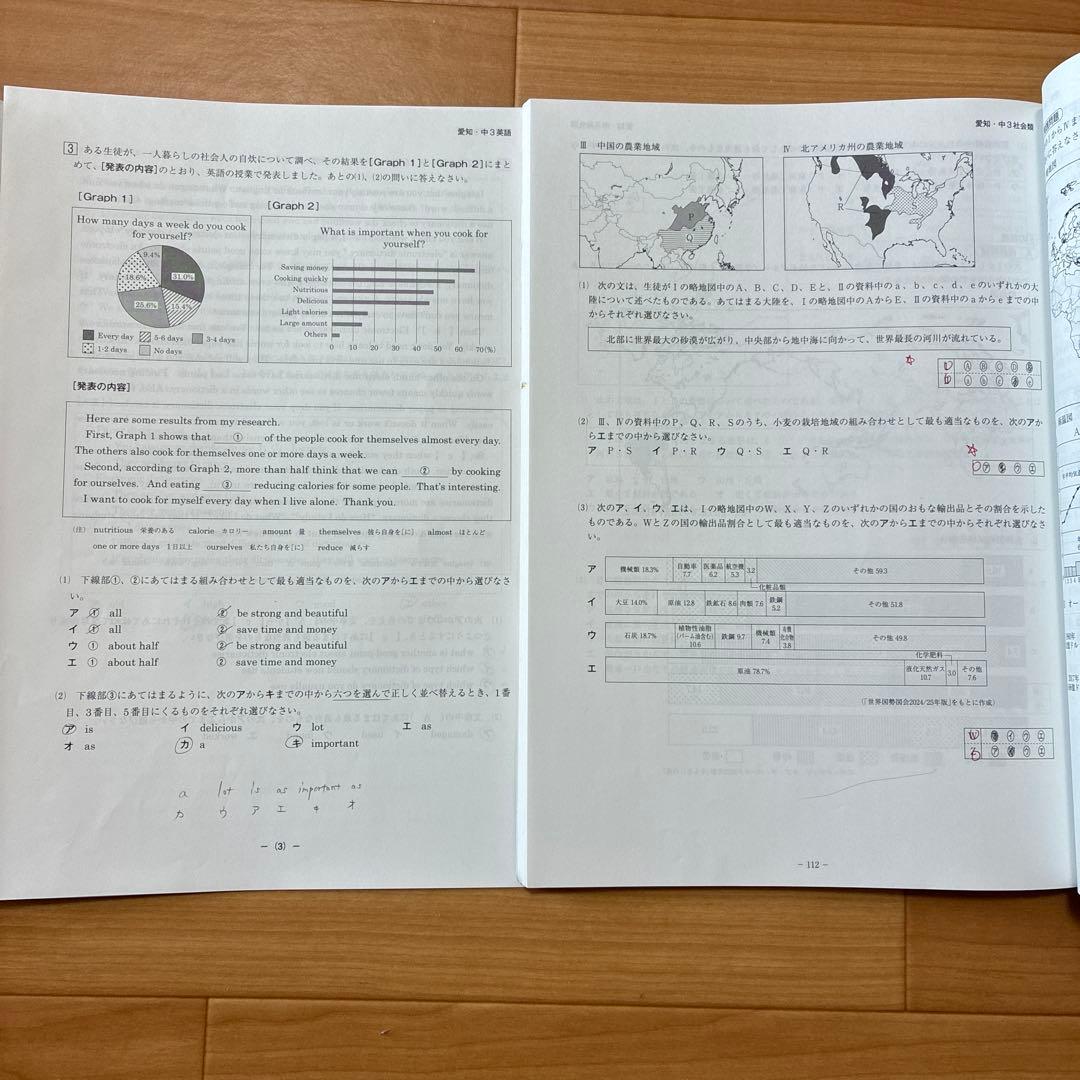 愛知・中3英語
3 ある生徒が、一人暮らしの社会人の自炊について調べ、その結果を[Graph 1]と[Graph 2]にまと
めて、[発表の内容]のとおり、英語の授業で発表しました。あとの(1)、(2)の問いに答えなさい。
[Graph 1]
How many days a week do you cook
for yourself?
9.4%
31.0%
18.6%
25.6%
15.4%
Every day 5-6 days 3-4 days
1-2 days No days
[Graph 2]
What is important when you cook for
yourself?
Saving money
Cooking quickly
Nutritious
Delicious
Light calories
Large amount
Others
0 10 20 30 40 50 60 70(%)
[発表の内容]
Here are some results from my research.
First, Graph 1 shows that ① of the people cook for themselves almost every day.
The others also cook for themselves one or more days a week.
Second, according to Graph 2, more than half think that we can ② by cooking
for ourselves. And eating ③ reducing calories for some people. That's interesting.
I want to cook for myself every day when I live alone. Thank you.
(注) nutritious 栄養のある calorie カロリー amount 量 themselves 彼ら自身を[に] almost ほとんど
one or more days 1日以上 ourselves 私たち自身を[に] reduce 減らす
(1) 下線部①、②にあてはまる組み合わせとして最も適当なものを、次のアからエまでの中から選びなさ
い。
ア ① all ② be strong and beautiful
イ ① all ② save time and money
ウ ① about half ② be strong and beautiful
エ ① about half ② save time and money
(2) 下線部③にあてはまるように、次のアからキまでの中から六つを選んで正しく並べ替えるとき、1番
目、3番目、5番目にくるものをそれぞれ選びなさい。
ア is イ delicious ウ lot エ as
オ as カ a キ important
a lot is as important as
カ ウ ア エ キ オ
- (3) -
愛知・中3社会類
Ⅲ 中国の農業地域
P
Q
Ⅳ 北アメリカ州の農業地域
R
S
(1) 次の文は、生徒がⅠの略地図中のA、B、C、D、Eと、Ⅱの資料中のa、b、c、d、eのいずれかの大
陸について述べたものである。あてはまる大陸を、Ⅰの略地図中のAからE、Ⅱの資料中のaからeまでの中
からそれぞれ選びなさい。
北部に世界最大の砂漠が広がり、中央部から地中海に向かって、世界最長の河川が流れている。
A B C D
a b c e
(2) Ⅲ、Ⅳの資料中のP、Q、R、Sのうち、小麦の栽培地域の組み合わせとして最も適当なものを、次のアか
らエまでの中から選びなさい。
ア P・S イ P・R ウ Q・S エ Q・R
ア ウ エ
(3) 次のア、イ、ウ、エは、Ⅰの略地図中のW、X、Y、Zのいずれかの国のおもな輸出品とその割合を示した
ものである。WとZの国の輸出品割合として最も適当なものを、次のアからエまでの中からそれぞれ選びなさ
い。
ア 機械類 18.3% 自動車 7.7 医薬品 6.2 航空機 5.3 3.2 その他 59.3
化粧品類
イ 大豆 14.0% 原油 12.8 鉄鉱石 8.6 肉類 7.6 鉄鋼 5.2 その他 51.8
ウ 石炭 18.7% 植物性油脂 (パーム油含む) 10.6 鉄鋼 9.7 機械類 7.4 有機化合物 3.8 その他 49.8
化学肥料
エ 原油 78.7% 液化天然ガス 10.7 3.0 その他 7.6
(「世界国勢図会2024/25年版」をもとに作成)
W イ ウ エ
Z ア ウ エ
- 112 -